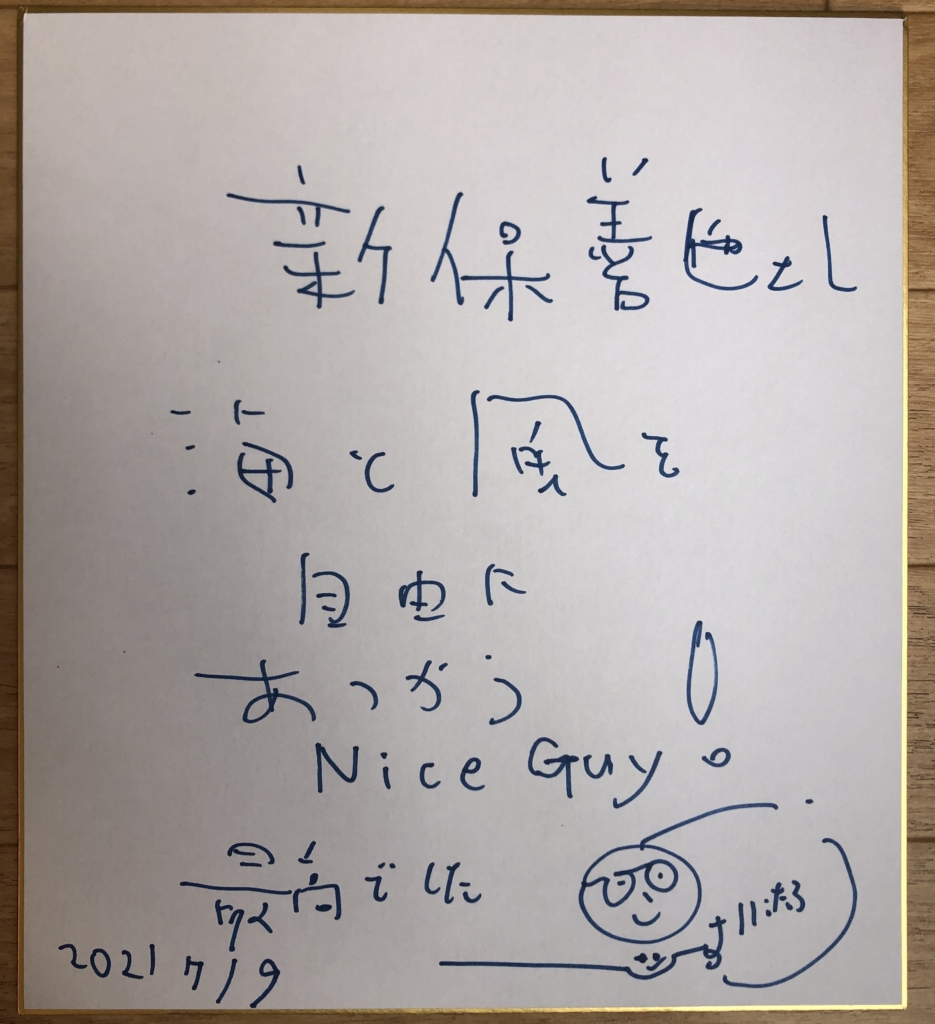 新保善
海と風を
自由に
あつかう
Nice Guy!
最高でした
2021 7/9